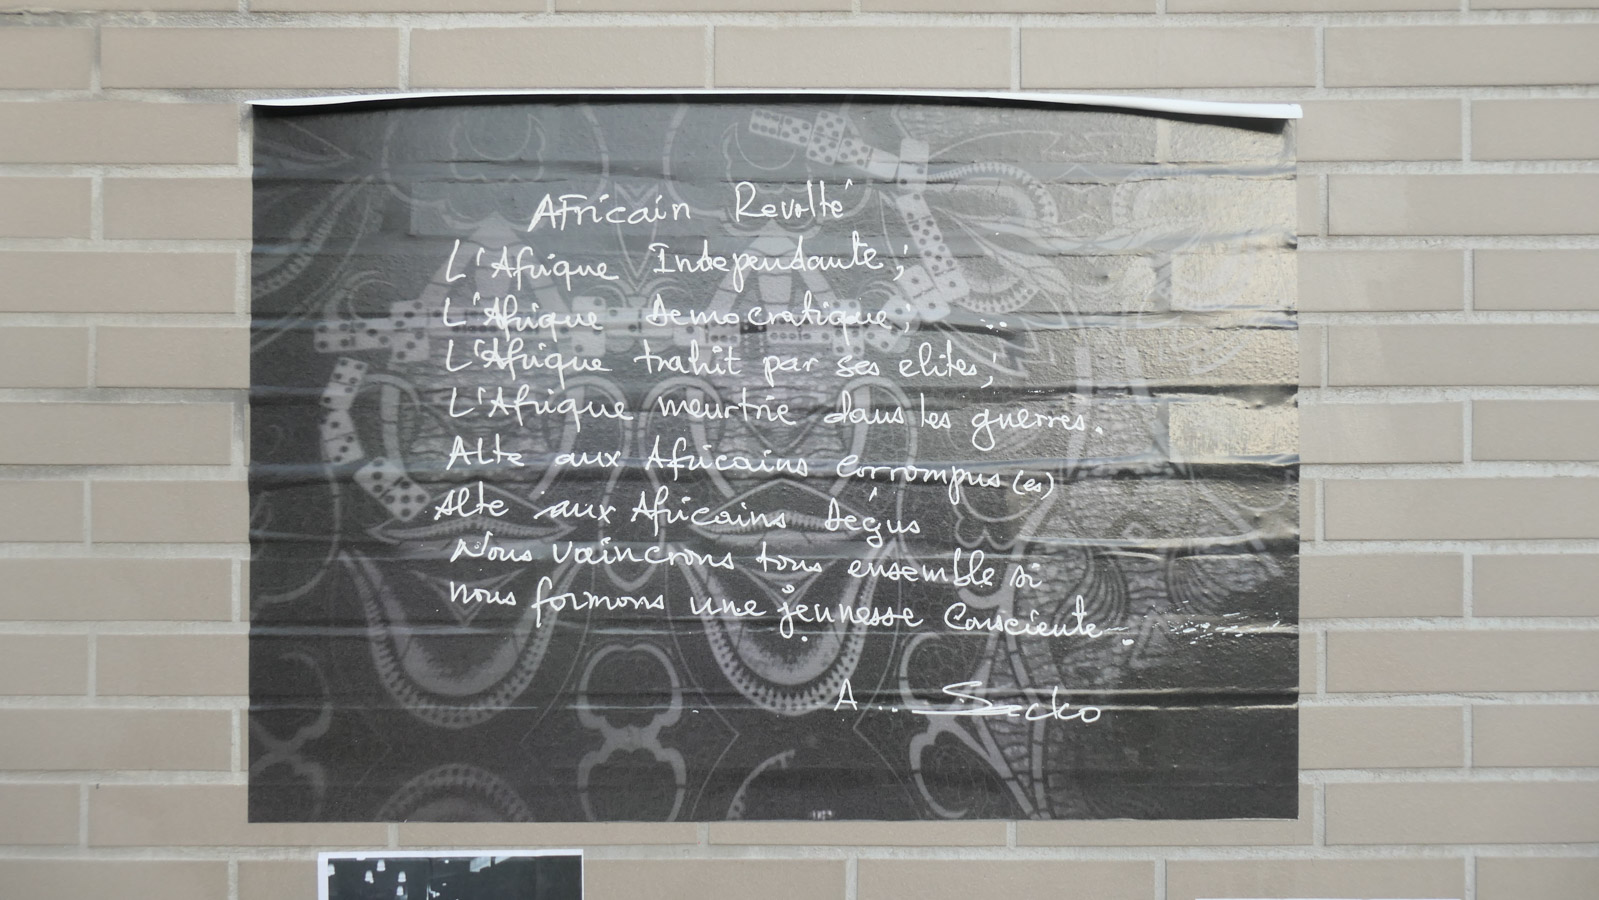 Africain Revolté
L'Afrique Independante;
L'Afrique Democratique;
L'Afrique trahit par ses elites;
L'Afrique meurtrie dans les guerres.
Alte aux Africains corrompus(es)
Alte aux Africains Déçus
Nous vaincrons tous ensemble si
nous formons une jeunesse Consciente.
A.. Sacko